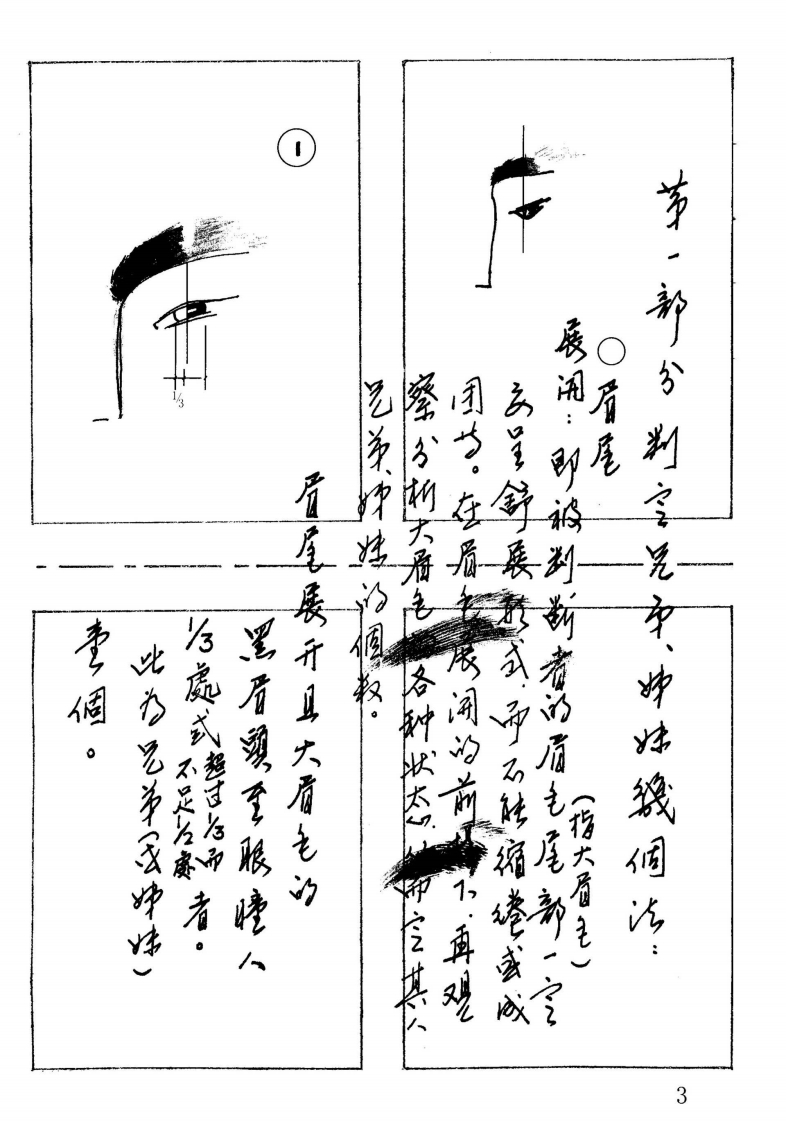 第一部分判定兄弟、姊妹幾個法：
(指大眉毛)
眉尾
展開：即被判断者的眉毛尾部一定
要呈舒展形式，而不能縮绻或成
团苪。在眉毛展開的前提下，再观
察分析大眉毛的各种状态，而定其人
兄弟、姊妹的個数。
1
1/3
眉尾展开且大眉毛的
黑眉頭至眼瞳人
1/3處，或超过1/3而不足1/2處者。
此为兄弟(或姊妹)
壹個。
3